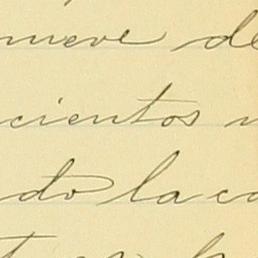 nueve de
cientos
do la ca